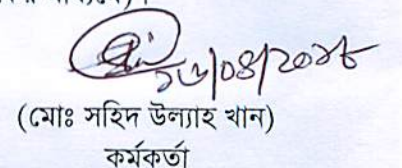 ২৬/০৪/২০১৮
(মোঃ সহিদ উল্যাহ খান)
কর্মকর্তা